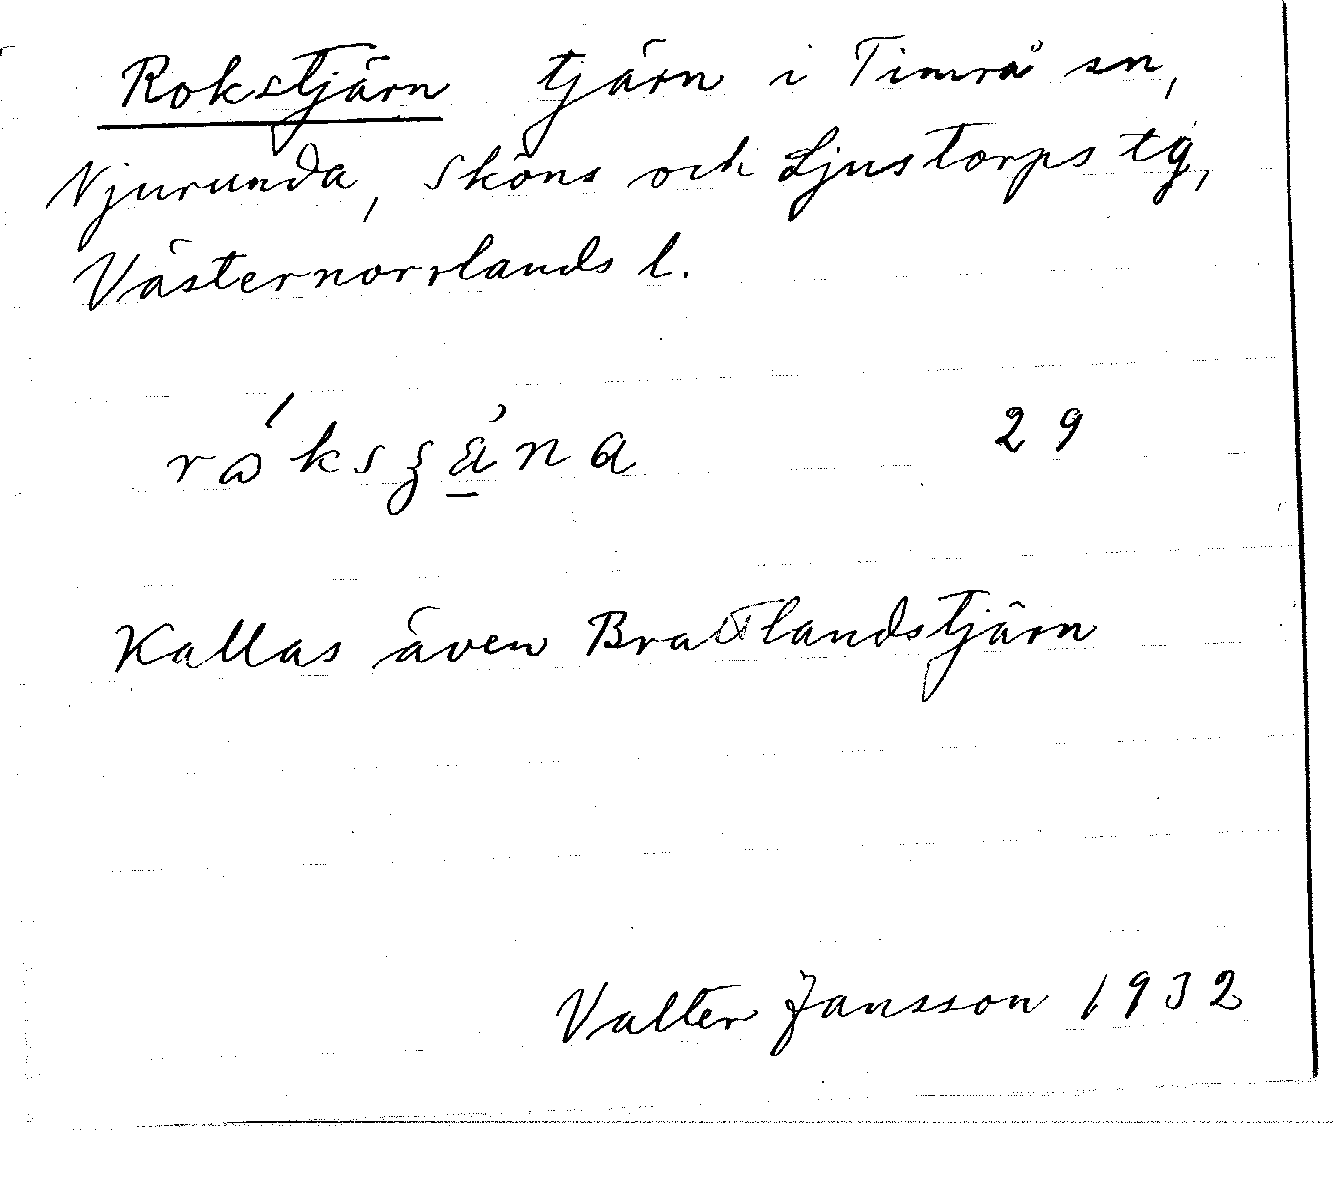 Rokstjärn tjärn i Timrå sn,
Njurunda, Sköns och Ljustorps tg,
Västernorrlands l.
29
Kallas även Brattlandstjärn
Valter Jansson 1932